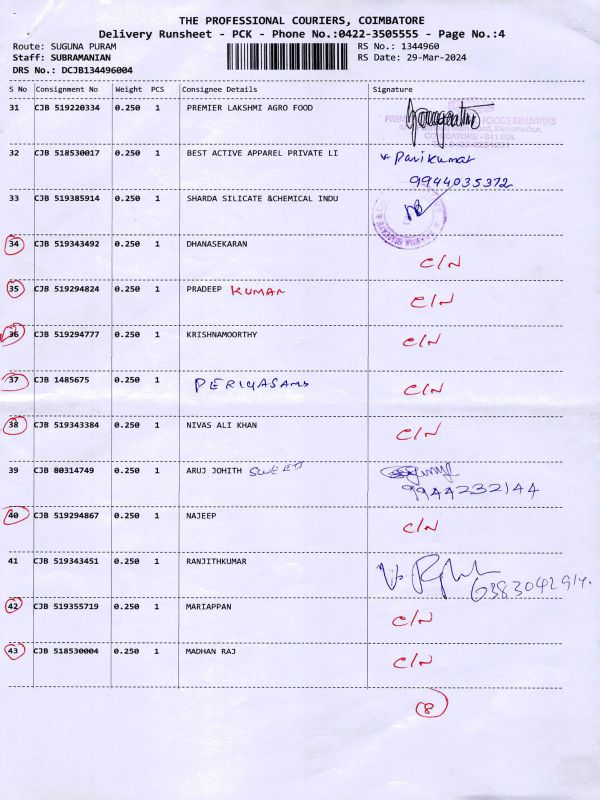 THE PROFESSIONAL COURIERS, COIMBATORE
Delivery Runsheet - PCK - Phone No.:0422-3505555 - Page No.:4
Route: SUGUNA PURAM
Staff: SUBRAMANIAN
DRS No.: DCJB134496004
RS No.: 1344960
RS Date: 29-Mar-2024
S No Consignment No Weight PCS Consignee Details Signature
31 CJB 519220334 0.250 1 PREMIER LAKSHMI AGRO FOOD
FOODS INDUSTRIES
COIMBATORE - 641
32 CJB 518530017 0.250 1 BEST ACTIVE APPAREL PRIVATE LI V. Parikumar
9944035372
33 CJB 519385914 0.250 1 SHARDA SILICATE &CHEMICAL INDU
34 CJB 519343492 0.250 1 DHANASEKARAN C/N
35 CJB 519294824 0.250 1 PRADEEP KUMAR C/N
36 CJB 519294777 0.250 1 KRISHNAMOORTHY C/N
37 CJB 1485675 0.250 1 PERIYASAMY C/N
38 CJB 519343384 0.250 1 NIVAS ALI KHAN C/N
39 CJB 80314749 0.250 1 ARUJ JOHITH SWEETS
9944232144
40 CJB 519294867 0.250 1 NAJEEP C/N
41 CJB 519343451 0.250 1 RANJITHKUMAR
42 CJB 519355719 0.250 1 MARIAPPAN C/N
43 CJB 518530004 0.250 1 MADHAN RAJ C/N
8